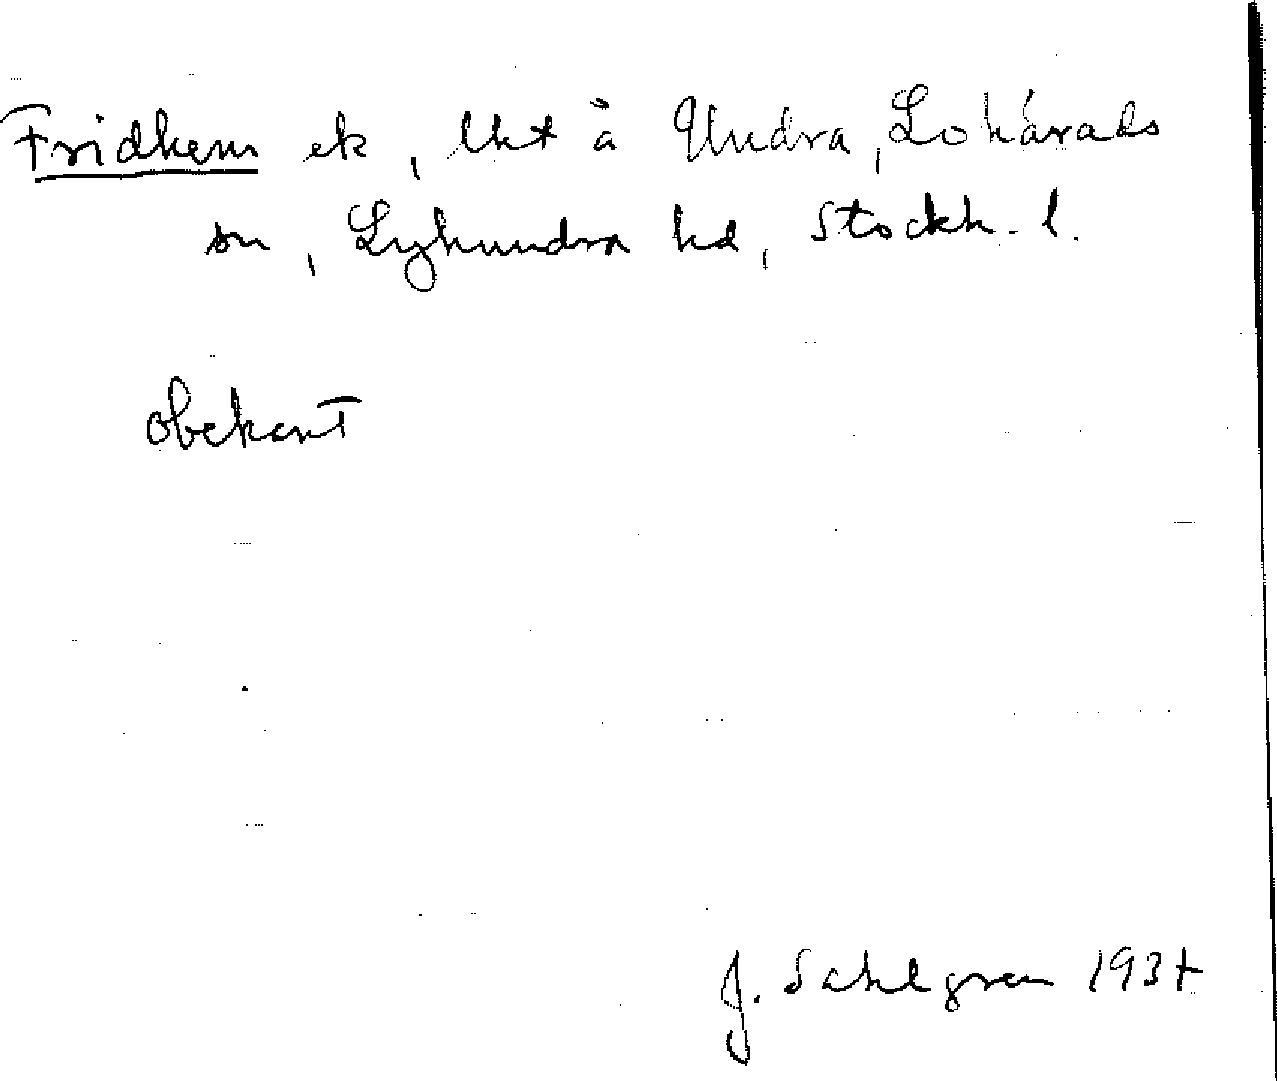 Fridhem ek, lht å Undra, Lohärads
sn, Lyhundra hd, Stockh. l.
obekant
J. Sahlgren 193